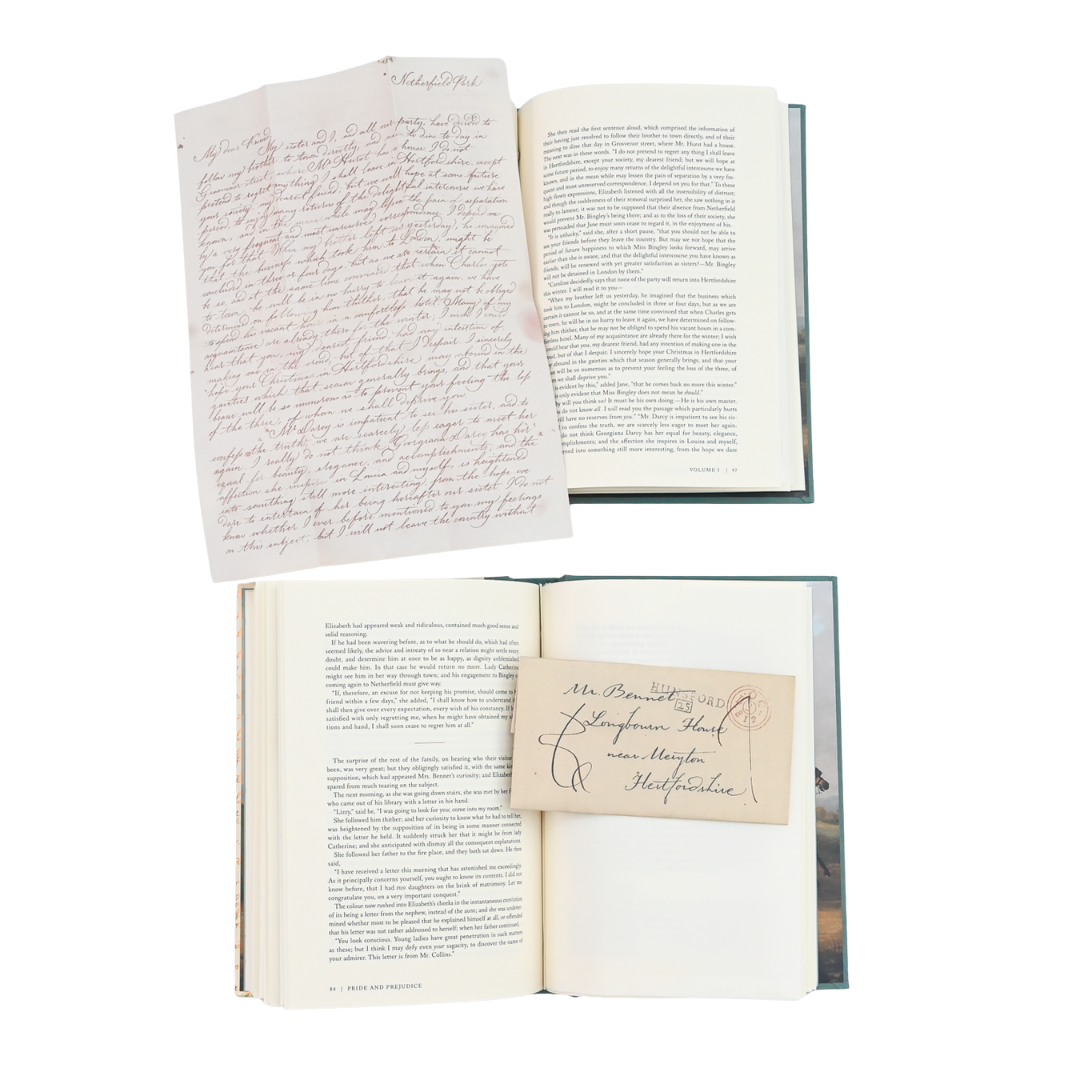 Netherfield Park
My dear Friend
My sister and I and all our party, have decided to
follow my brother to town directly, and are to dine to day in
Grosvenor street, where Mr. Hurst has a house. I do not
pretend to regret anything I shall leave in Hertfordshire, except
your society, my dearest friend; but we will hope at some future
period, to enjoy many returns of the delightful intercourse we have
known, and in the mean while may lessen the pain of separation
by a very frequent and most unreserved correspondence. I depend on
you for that. When my brother left us yesterday, he imagined
that the business which took him to London, might be
concluded in three or four days, but as we are certain it cannot
be so, and at the same time convinced that when Charles gets
to town, he will be in no hurry to leave it again, we have
determined on following him thither, that he may not be obliged
to spend his vacant hours in a comfortless hotel. Many of my
acquaintance are already there for the winter; I wish I could
hear that you, my dearest friend, had any intention of
making one in the croud, but of that I despair. I sincerely
hope your Christmas in Hertfordshire may abound in the
gaieties which that season generally brings, and that your
beaux will be so numerous as to prevent your feeling the loss
of the three, of whom we shall deprive you.
Mr. Darcy is impatient to see his sister, and to
confess the truth, we are scarcely less eager to meet her
again. I really do not think Georgiana Darcy has her
equal for beauty, elegance, and accomplishments; and the
affection she inspires in Louisa and myself, is heightened
into something still more interesting, from the hope we
dare to entertain of her being hereafter our sister. I do not
know whether I ever before mentioned to you my feelings
on this subject, but I will not leave the country without
She then read the first sentence aloud, which comprised the information of
their having just resolved to follow their brother to town directly, and of their
meaning to dine that day in Grosvenor street, where Mr. Hurst had a house.
The next was in these words. "I do not pretend to regret any thing I shall leave
in Hertfordshire, except your society, my dearest friend; but we will hope at
some future period, to enjoy many returns of the delightful intercourse we have
known, and in the mean while may lessen the pain of separation by a very fre-
quent and most unreserved correspondence. I depend on you for that." To these
high flown expressions, Elizabeth listened with all the insensibility of distrust;
and though the suddenness of their removal surprised her, she saw nothing in it
really to lament; it was not to be supposed that their absence from Netherfield
would prevent Mr. Bingley's being there; and as to the loss of their society, she
was persuaded that Jane must soon cease to regard it, in the enjoyment of his.
"It is unlucky," said she, after a short pause, "that you should not be able to
see your friends before they leave the country. But may we not hope that the
period of future happiness to which Miss Bingley looks forward, may arrive
earlier than she is aware, and that the delightful intercourse you have known as
friends, will be renewed with yet greater satisfaction as sisters?—Mr. Bingley
will not be detained in London by them."
"Caroline decidedly says that none of the party will return into Hertfordshire
this winter. I will read it to you—
"When my brother left us yesterday, he imagined that the business which
took him to London, might be concluded in three or four days, but as we are
certain it cannot be so, and at the same time convinced that when Charles gets
to town, he will be in no hurry to leave it again, we have determined on follow-
ing him thither, that he may not be obliged to spend his vacant hours in a com-
fortless hotel. Many of my acquaintance are already there for the winter; I wish
could hear that you, my dearest friend, had any intention of making one in the
croud, but of that I despair. I sincerely hope your Christmas in Hertfordshire
abound in the gaieties which that season generally brings, and that your
will be so numerous as to prevent your feeling the loss of the three, of
we shall deprive you."
is evident by this," added Jane, "that he comes back no more this winter."
only evident that Miss Bingley does not mean he should."
will you think so? It must be his own doing.—He is his own master.
do not know all. I will read you the passage which particularly hurts
will have no reserves from you." "Mr. Darcy is impatient to see his sis-
to confess the truth, we are scarcely less eager to meet her again.
do not think Georgiana Darcy has her equal for beauty, elegance,
accomplishments; and the affection she inspires in Louisa and myself,
into something still more interesting, from the hope we dare
VOLUME I | 97
Elizabeth had appeared weak and ridiculous, contained much good sense and
solid reasoning.
If he had been wavering before, as to what he should do, which had often
seemed likely, the advice and intreaty of so near a relation might settle every
doubt, and determine him at once to be as happy, as dignity unblemished
could make him. In that case he would return no more. Lady Catherine
might see him in her way through town; and his engagement to Bingley of
coming again to Netherfield must give way.
"If, therefore, an excuse for not keeping his promise, should come to his
friend within a few days," she added, "I shall know how to understand it. I
shall then give over every expectation, every wish of his constancy. If he is
satisfied with only regretting me, when he might have obtained my affec-
tions and hand, I shall soon cease to regret him at all."
The surprise of the rest of the family, on hearing who their visitor had
been, was very great; but they obligingly satisfied it, with the same kind of
supposition, which had appeased Mrs. Bennet's curiosity; and Elizabeth was
spared from much teazing on the subject.
The next morning, as she was going down stairs, she was met by her father,
who came out of his library with a letter in his hand.
"Lizzy," said he, "I was going to look for you; come into my room."
She followed him thither; and her curiosity to know what he had to tell her,
was heightened by the supposition of its being in some manner connected
with the letter he held. It suddenly struck her that it might be from lady
Catherine; and she anticipated with dismay all the consequent explanations.
She followed her father to the fire place, and they both sat down. He then
said,
"I have received a letter this morning that has astonished me exceedingly.
As it principally concerns yourself, you ought to know its contents. I did not
know before, that I had two daughters on the brink of matrimony. Let me
congratulate you, on a very important conquest."
The colour now rushed into Elizabeth's cheeks in the instantaneous conviction
of its being a letter from the nephew, instead of the aunt; and she was undeter-
mined whether most to be pleased that he explained himself at all, or offended
that his letter was not rather addressed to herself; when her father continued,
"You look conscious. Young ladies have great penetration in such matters
as these; but I think I may defy even your sagacity, to discover the name of
your admirer. This letter is from Mr. Collins."
84 | PRIDE AND PREJUDICE
HUNSFORD
25
Mr. Bennet
Longbourn House
near Meryton
Hertfordshire.